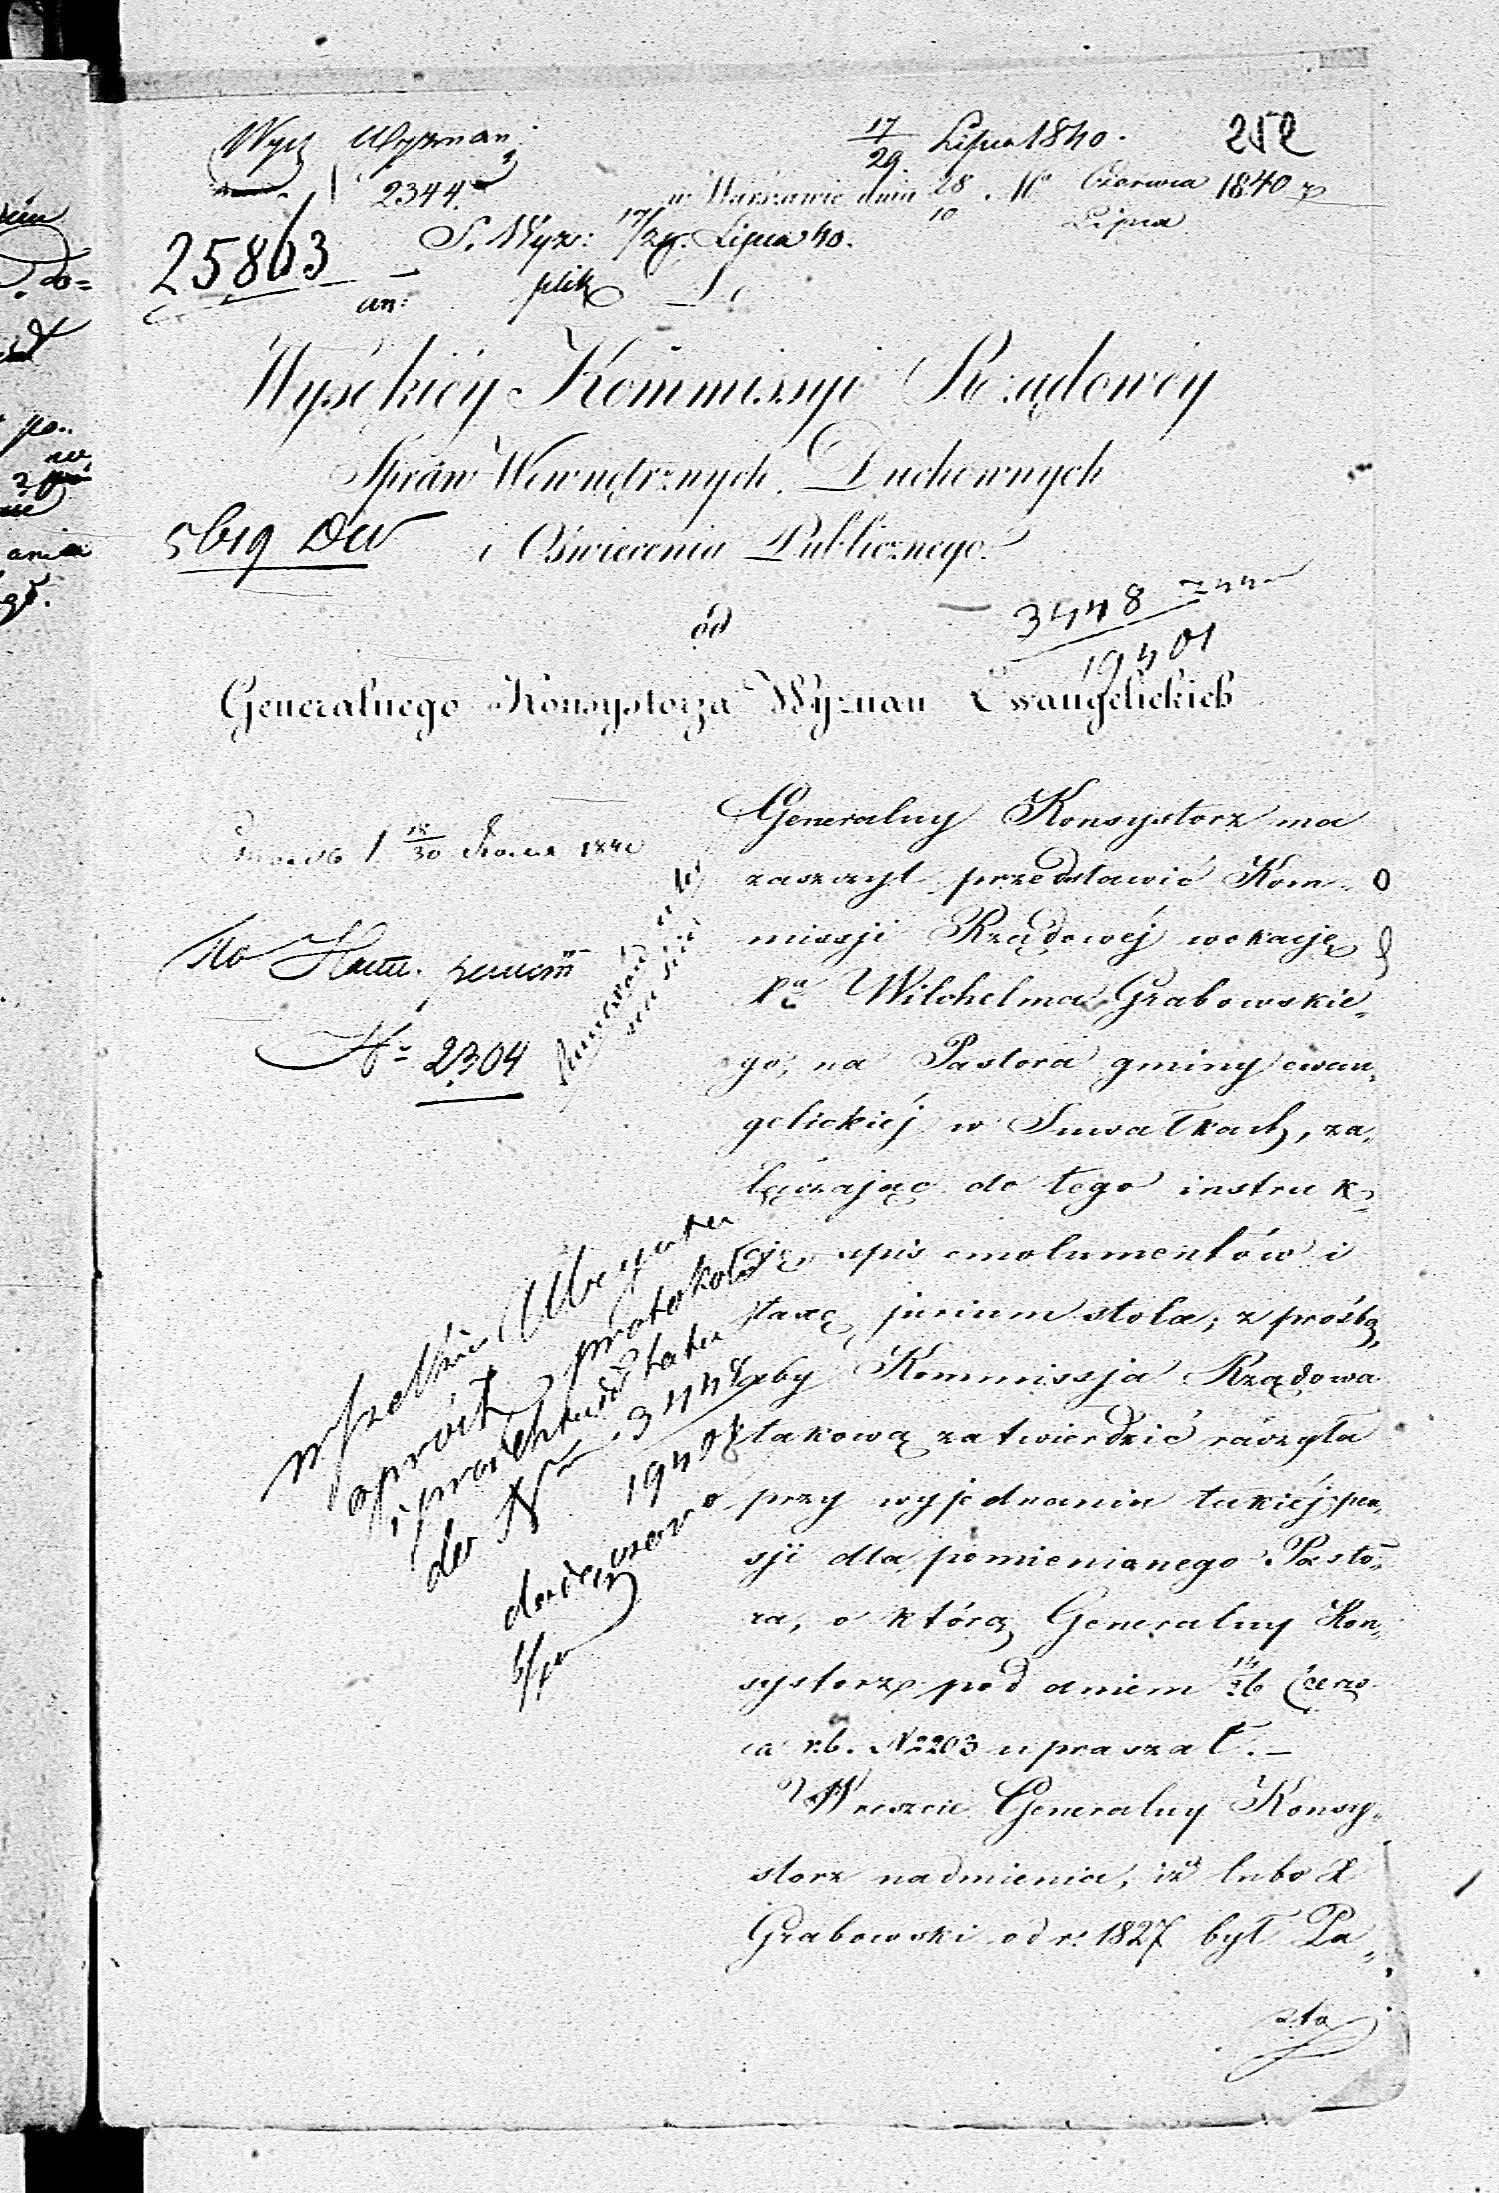 Wyz Wyznan
17/29 Lipca 1840.
252
2344
w Warszawie dnia 28 Czerwca 1840 r
10 Lipca
S. Wyzn: 17/29. Lipca 40.
25863
an:
plik
Do
Wysokiéy Kommissyi Rządowéy
Spraw Wewnętrznych, Duchownych
5619 DW
i Oświecenia Publicznego.
od
3448
19401
Generalnego Konsystorza Wyznan Ewangelickich
Generalny Konsystorz ma
zaszczyt przedstawić Kom-
missji Rządowéj wokacje
Xa Wilchelma Grabowskie-
go, na Pastora gminy ewan-
gelickiéj w Suwałkach, za-
łączając do tego instruk-
cję, opis emolumentów i
taxę jurium stolæ; z prośbą,
aby Kommissja Rządowa
takową zatwierdzić raczyła
przy wyjednaniu takiéj pen-
sji dla pomienionego Pasto-
ra, o którą Generalny Kon-
systorz pod dniem 14/26 Czerw
ca r.b. N 2203 upraszał. –
Wreszcie Generalny Konsy-
storz nadmienia, iż lubo X
Grabowski od r. 1827 był Pa-
sto
30 1840
No
Nr 2304
wszelkie
oprócz protokołu
i
do Nr 3448
19401
dołączono